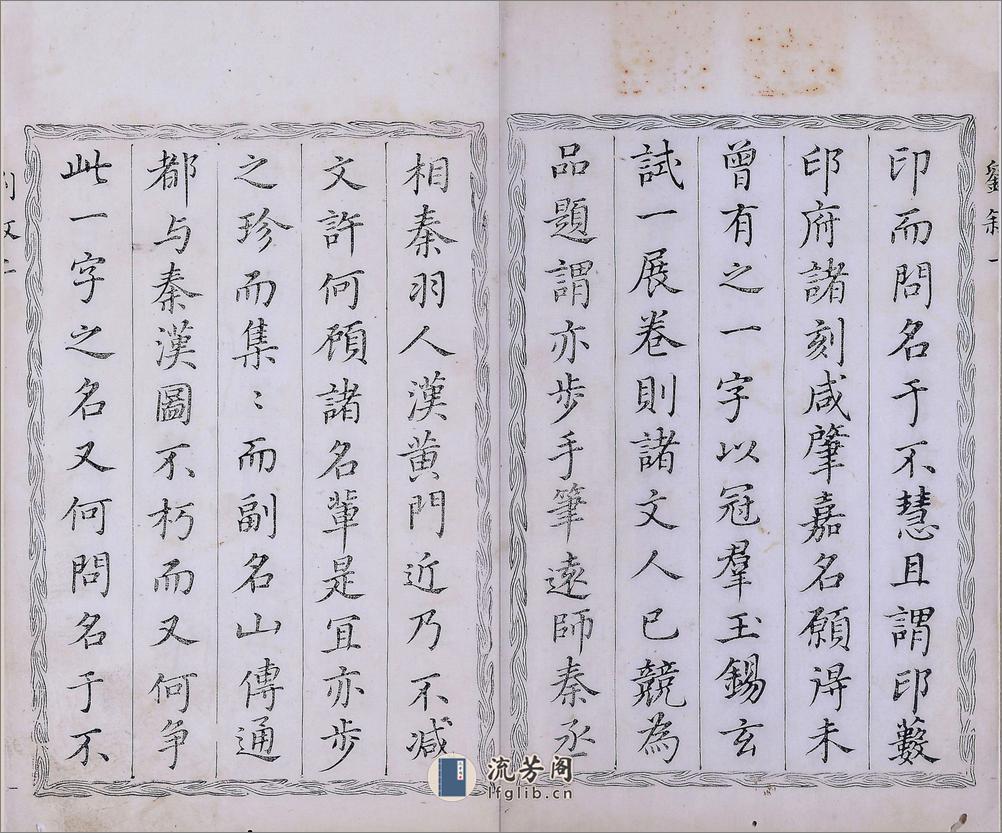 印而問名于不慧且謂印藪
印府諸刻咸肇嘉名願得未
曾有之一字以冠羣玉錫玄
試一展卷則諸文人已競為
品題謂亦步手筆遠師秦丞
相秦羽人漢黄門近乃不減
文許何顧諸名軰是冝亦步
之珍而集〻而副名山傳通
都与秦漢圖不朽而又何争
此一字之名又何問名于不
流芳阁
lfglib.cn